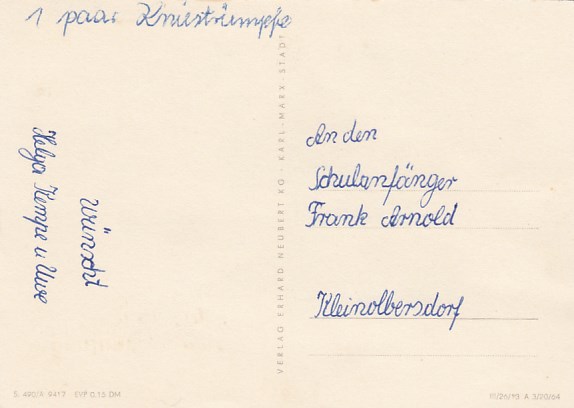 1 paar Kniestrümpfe
wünscht
Helga Hempe u Uwe
VERLAG ERHARD NEUBERT KG · KARL-MARX-STADT
An den
Schulanfänger
Frank Arnold
Kleinolbersdorf
9417 EVP 0,15 DM
A 3/20/64